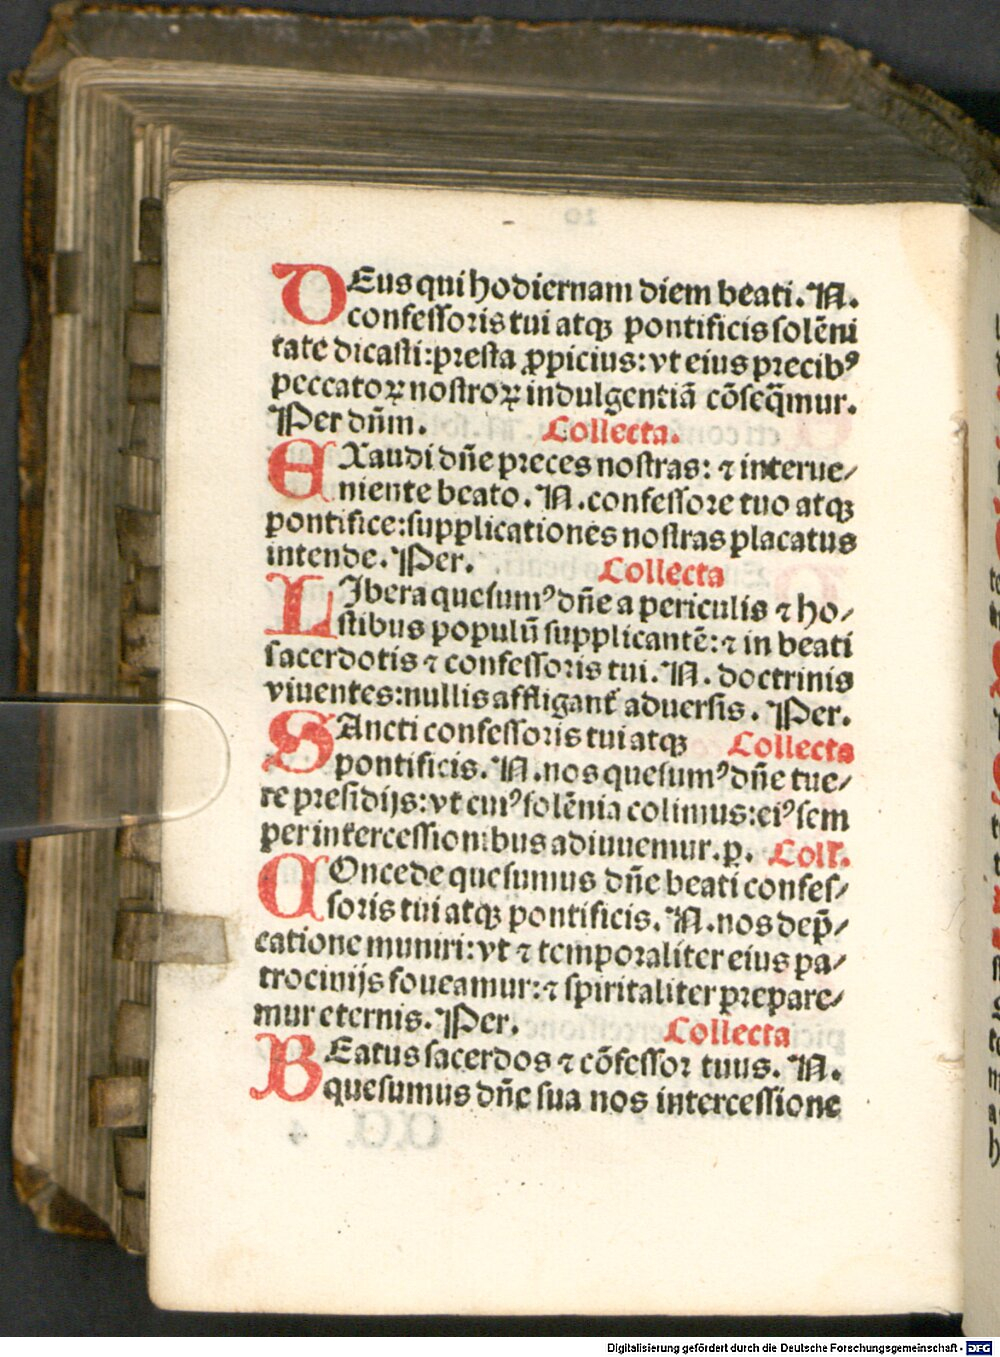 DEus qui hodiernam diem beati. N.
confessoris tui atqꝫ pontificis solēni
tate dicasti: presta ꝓpicius: vt eius precibꝰ
peccatoꝝ nostroꝝ indulgentiā cōseq̄mur.
Per dn̄m. Collecta.
EXaudi dn̄e preces nostras: ⁊ interue/
niente beato. N. confessore tuo atqꝫ
pontifice: supplicationes nostras placatus
intende. Per. Collecta
LIbera quesumꝰ dn̄e a periculis ⁊ ho/
stibus populū supplicantē: ⁊ in beati
sacerdotis ⁊ confessoris tui. N. doctrinis
viuentes: nullis affligant᷑ aduersis. Per.
SAncti confessoris tui atqꝫ Collecta
pontificis. N. nos quesumꝰ dn̄e tue/
re presidijs: vt cuiꝰ solēnia colimus: eiꝰ sem
per intercessionibus adiuuemur. p. Coll'.
COncede quesumus dn̄e beati confes/
soris tui atqꝫ pontificis. N. nos dep̄/
catione muniri: vt ⁊ temporaliter eius pa/
trocinijs foueamur: ⁊ spiritaliter prepare/
mur eternis. Per. Collecta
BEatus sacerdos ⁊ cōfessor tuus. N.
quesumus dn̄e sua nos intercessione
Digitalisierung gefördert durch die Deutsche Forschungsgemeinschaft - DFG